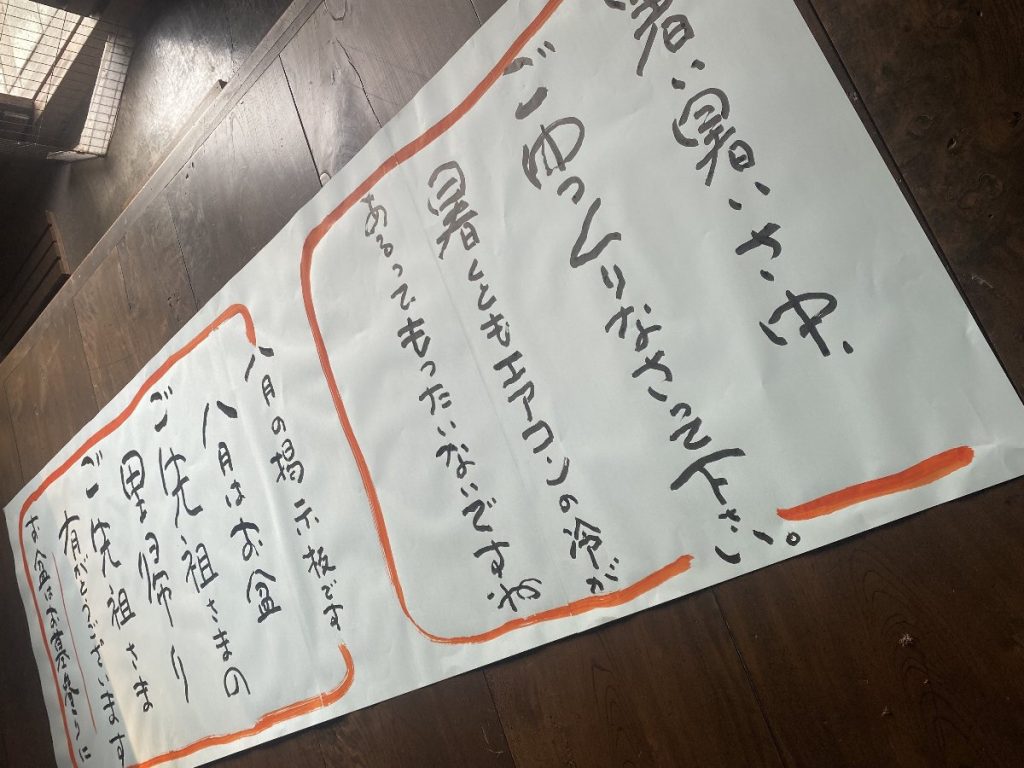 暑い暑いさ中、
ごゆっくりなさって下さい。
暑くともエアコンの冷が
あるってもったいないですね
八月の掲示板です
八月はお盆
ご先祖さまの
里帰り
ご先祖さま
有がとうございます
お盆はお墓参りに